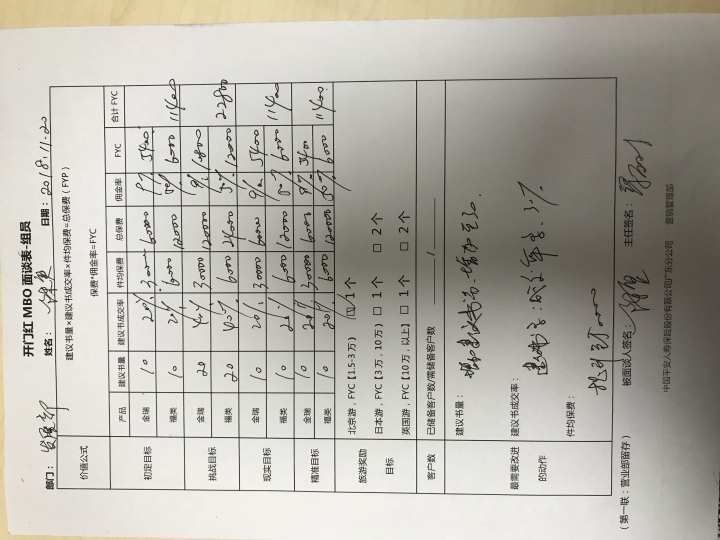 开门红 MBO 面谈表-组员
部门： 姓名： 日期：2018.11.20
价值公式 建议书量×建议书成交率×件均保费=总保费（FYP）
保费*佣金率=FYC
产品 建议书量 建议书成交率 件均保费 总保费 佣金率 FYC 合计 FYC
初定目标 金瑞 10 20% 30000 60000 9% 5400 11400
福类 10 20% 6000 12000 50% 6000
挑战目标 金瑞 20 40% 30000 9% 10800 22800
福类 20 40% 6000 24000 50% 12000
现实目标 金瑞 10 20% 30000 60000 9% 5400 11400
福类 10 20% 6000 12000 50% 6000
精准目标 金瑞 10 20% 30000 60000 9% 5400 11400
福类 10 20% 6000 12000 50% 6000
旅游奖励
目标
北京游，FYC【1.5-3 万） ☑ 1 个
日本游，FYC【3 万，10 万） □ 1 个 □ 2 个
英国游，FYC【10 万，以上】 □ 1 个 □ 2 个
客户数 已储备客户数/需储备客户数 /
最需要改进
的动作
建议书量：
建议书成交率：
件均保费：
（第一联：营业部留存） 被面谈人签名： 主任签名：
中国平安人寿保险股份有限公司广东分公司 营销管理部